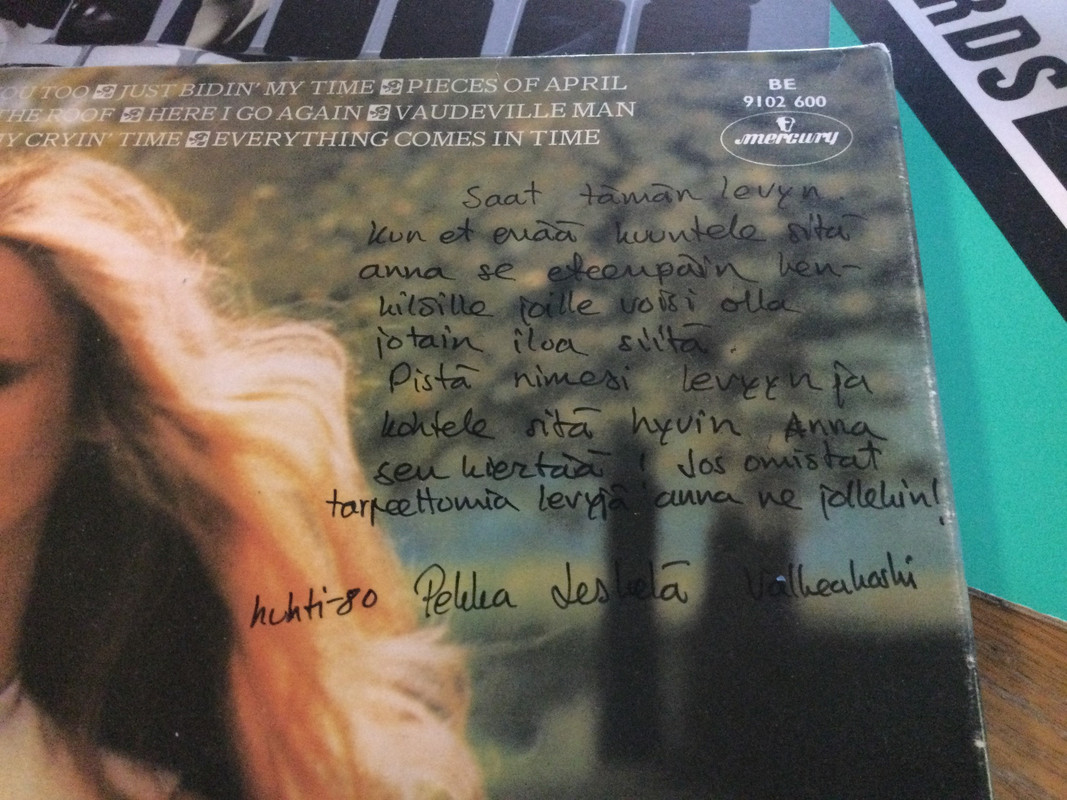 OU TOO JUST BIDIN' MY TIME PIECES OF APRIL
THE ROOF HERE I GO AGAIN VAUDEVILLE MAN
Y CRYIN' TIME EVERYTHING COMES IN TIME
BE
9102 600
mercury
RDS
Saat tämän levyn.
Kun et enää kuuntele sitä
anna se eteenpäin hen-
kilöille joille voisi olla
jotain iloa siitä.
Pistä nimesi levyyn ja
kohtele sitä hyvin Anna
sen kiertää! Jos omistat
tarpeettomia levyjä anna ne jollekin!
huhti-80 Pekka Leskelä Valkeakoski